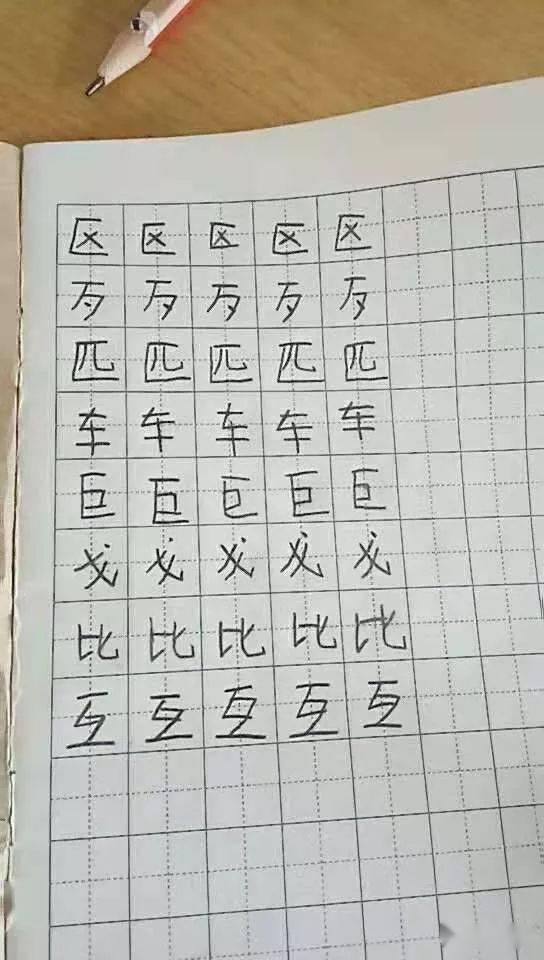 区 区 区 区 区
歹 歹 歹 歹 歹
匹 匹 匹 匹 匹
车 车 车 车 车
巨 巨 巨 巨 巨
戈 戈 戈 戈 戈
比 比 比 比 比
互 互 互 互 互